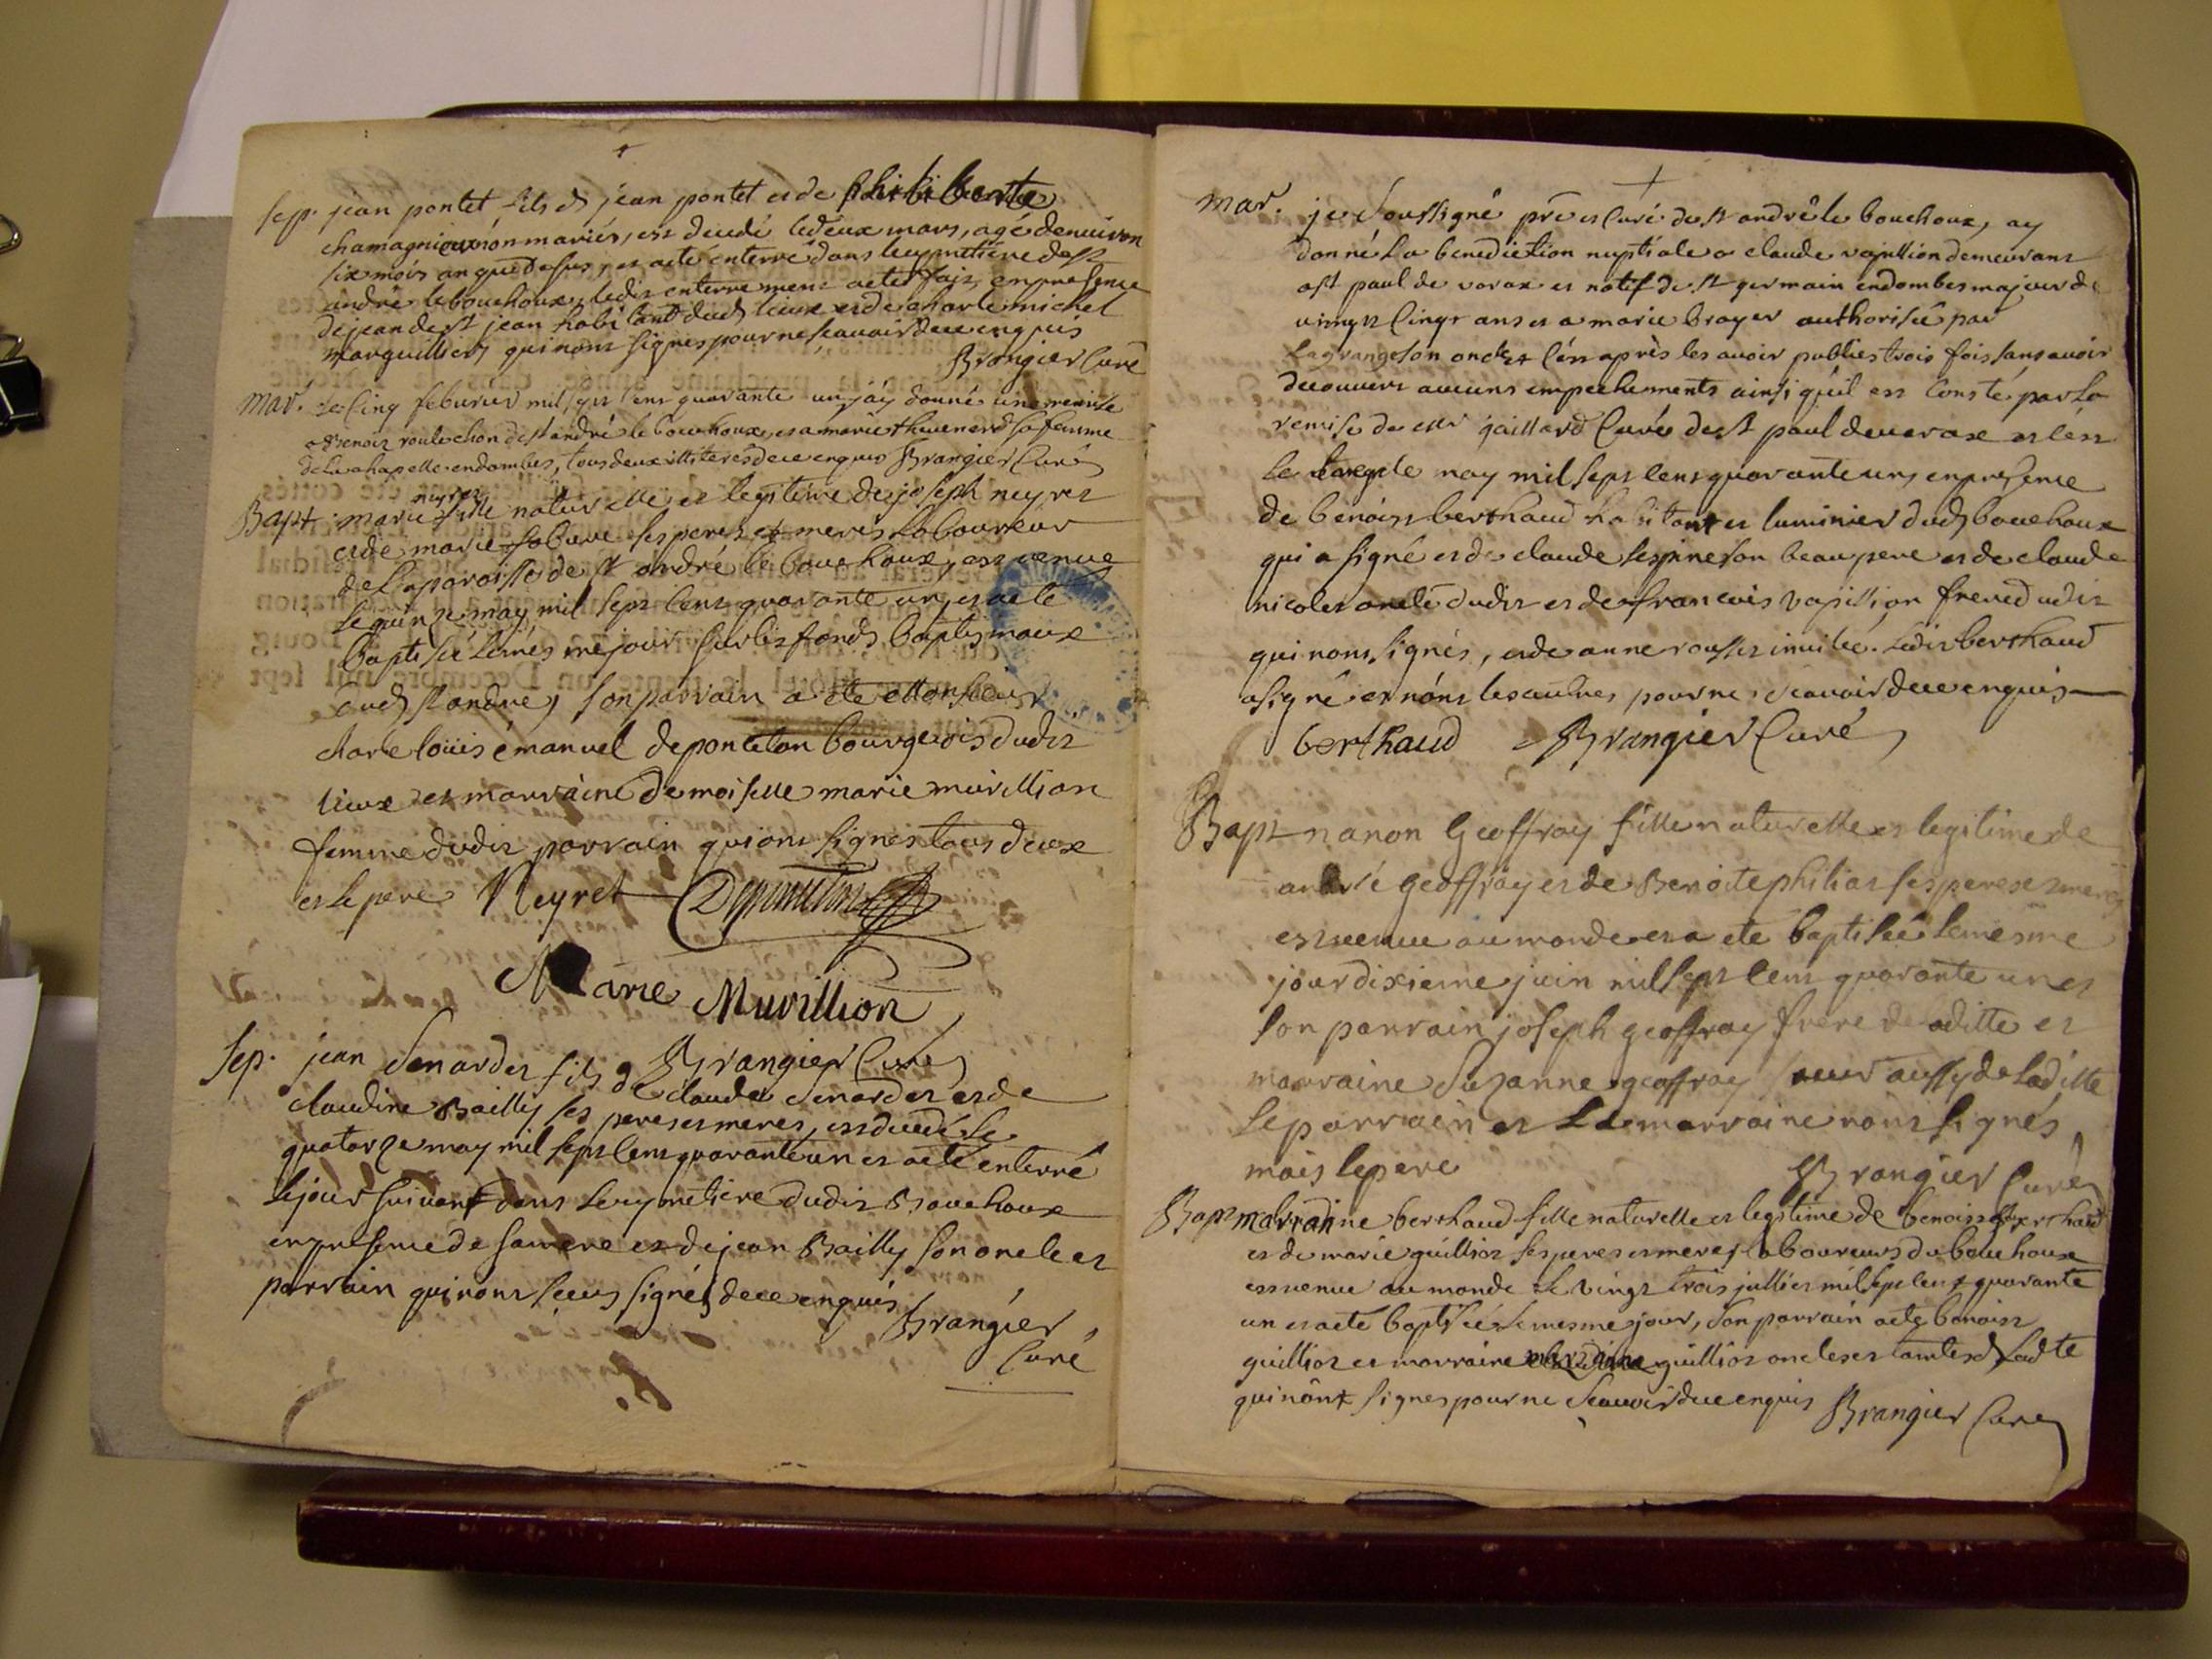 Sep. jean pontet fils d jean pontet et de philiberte
chamagnieux non mariés, est decedé le deux mars, agé denviron
six mois an que desus, et a eté enterré dans le cymetiere de st
andré le bouchoux, ledit enterrement a eté fait en presence
de jean de st jean habitant dud lieux et de charle michel
marguilliers qui nont signés pour ne scavoir de ce enquis
Brangier Curé
Mar. Le Cinq feburier mil sept Cent quarante un j'ay donné une remise
a Benoit roulechon de st andré le bouchoux, et a marie thevenard sa femme
de la chapelle en dombes, tous deux illiteres de ce enquis Brangier Curé
neyret
Bapt. marie fille naturelle et legitime de joseph neyret
et de marie ses peres et meres Laboureur
de la paroisse de st andré le bouchoux, est venue
le quinze may mil sept Cent quarante un, et a eté
baptisée le mesme jour sur les fonds baptismaux
dud st andré, son parrain a eté Monsieur
charle loüis émanuel deponceton bourgeois dudit
lieux et marraine demoiselle marie murillion
femme dudit parrain qui ont signés tous deux
et le pere Neyret Deponceton
Marie Muvillion
Brangier Curé
Sep. jean Senardet fils de Claude Senardet et de
claudine Bailly ses peres et meres, est decedé le
quatorze may mil sept Cent quarante un et a eté enterré
le jour suivant dans le cymetiere dudit Bouchoux
en presence de sa mere et de jean Bailly son oncle et
parrain qui nont sceus signés de ce enquis
Brangier
Curé
Mar. je Soussigné prë et Curé de st andré le bouchoux, ay
donné La benediction nuptiale a claude vapillion demeurant
a st paul de varax et natif de st germain en dombes majeur de
vingt Cinqt ans et a marie brayer authorisée par
Lagrange son oncle et Cést après les avoir publies trois fois sans avoir
decouvert aucuns empechements ainsi qu'il est Consté par La
remise de mr gaillard Curé de st paul de varax et Cest
le may mil sept Cent quarante un, en presence
de benoist berthaud habitant et luminier dud bouchoux
qui a signé et de claude lespine son beau pere et de claude
nicolet oncle dudit et de francois vapillion frere dudit
qui nont signés, et de anne rousset invitée. Ledit berthaud
a signé et nont les autres pour ne scavoir de ce enquis
berthaud Brangier Curé
Bapt nanon Geoffray fille naturelle et legitime de
andré geoffray et de Benoite philiat ses peres et meres
est venue au monde et a eté baptisée le mesme
jour dixieme juin mil sept Cent quarante un et
son parrain joseph geoffray frere de laditte et
marraine Suzanne geoffray soeur aussy de laditte
le parrain et La marraine nont signés
mais le pere Brangier Curé
Bapt marianne berthaud fille naturelle et legitime de benoist berthaud
et de marie guilliot ses peres et meres laboureurs du bouchoux
est venue au monde le vingt trois julliet mil sept Cent quarante
un et a eté baptisée le mesme jour, Son parrain a eté benoist
guilliot et marraine guilliot oncles et tantes d Ladte
qui n'ont signes pour ne Scavoir de ce enquis Brangier Curé